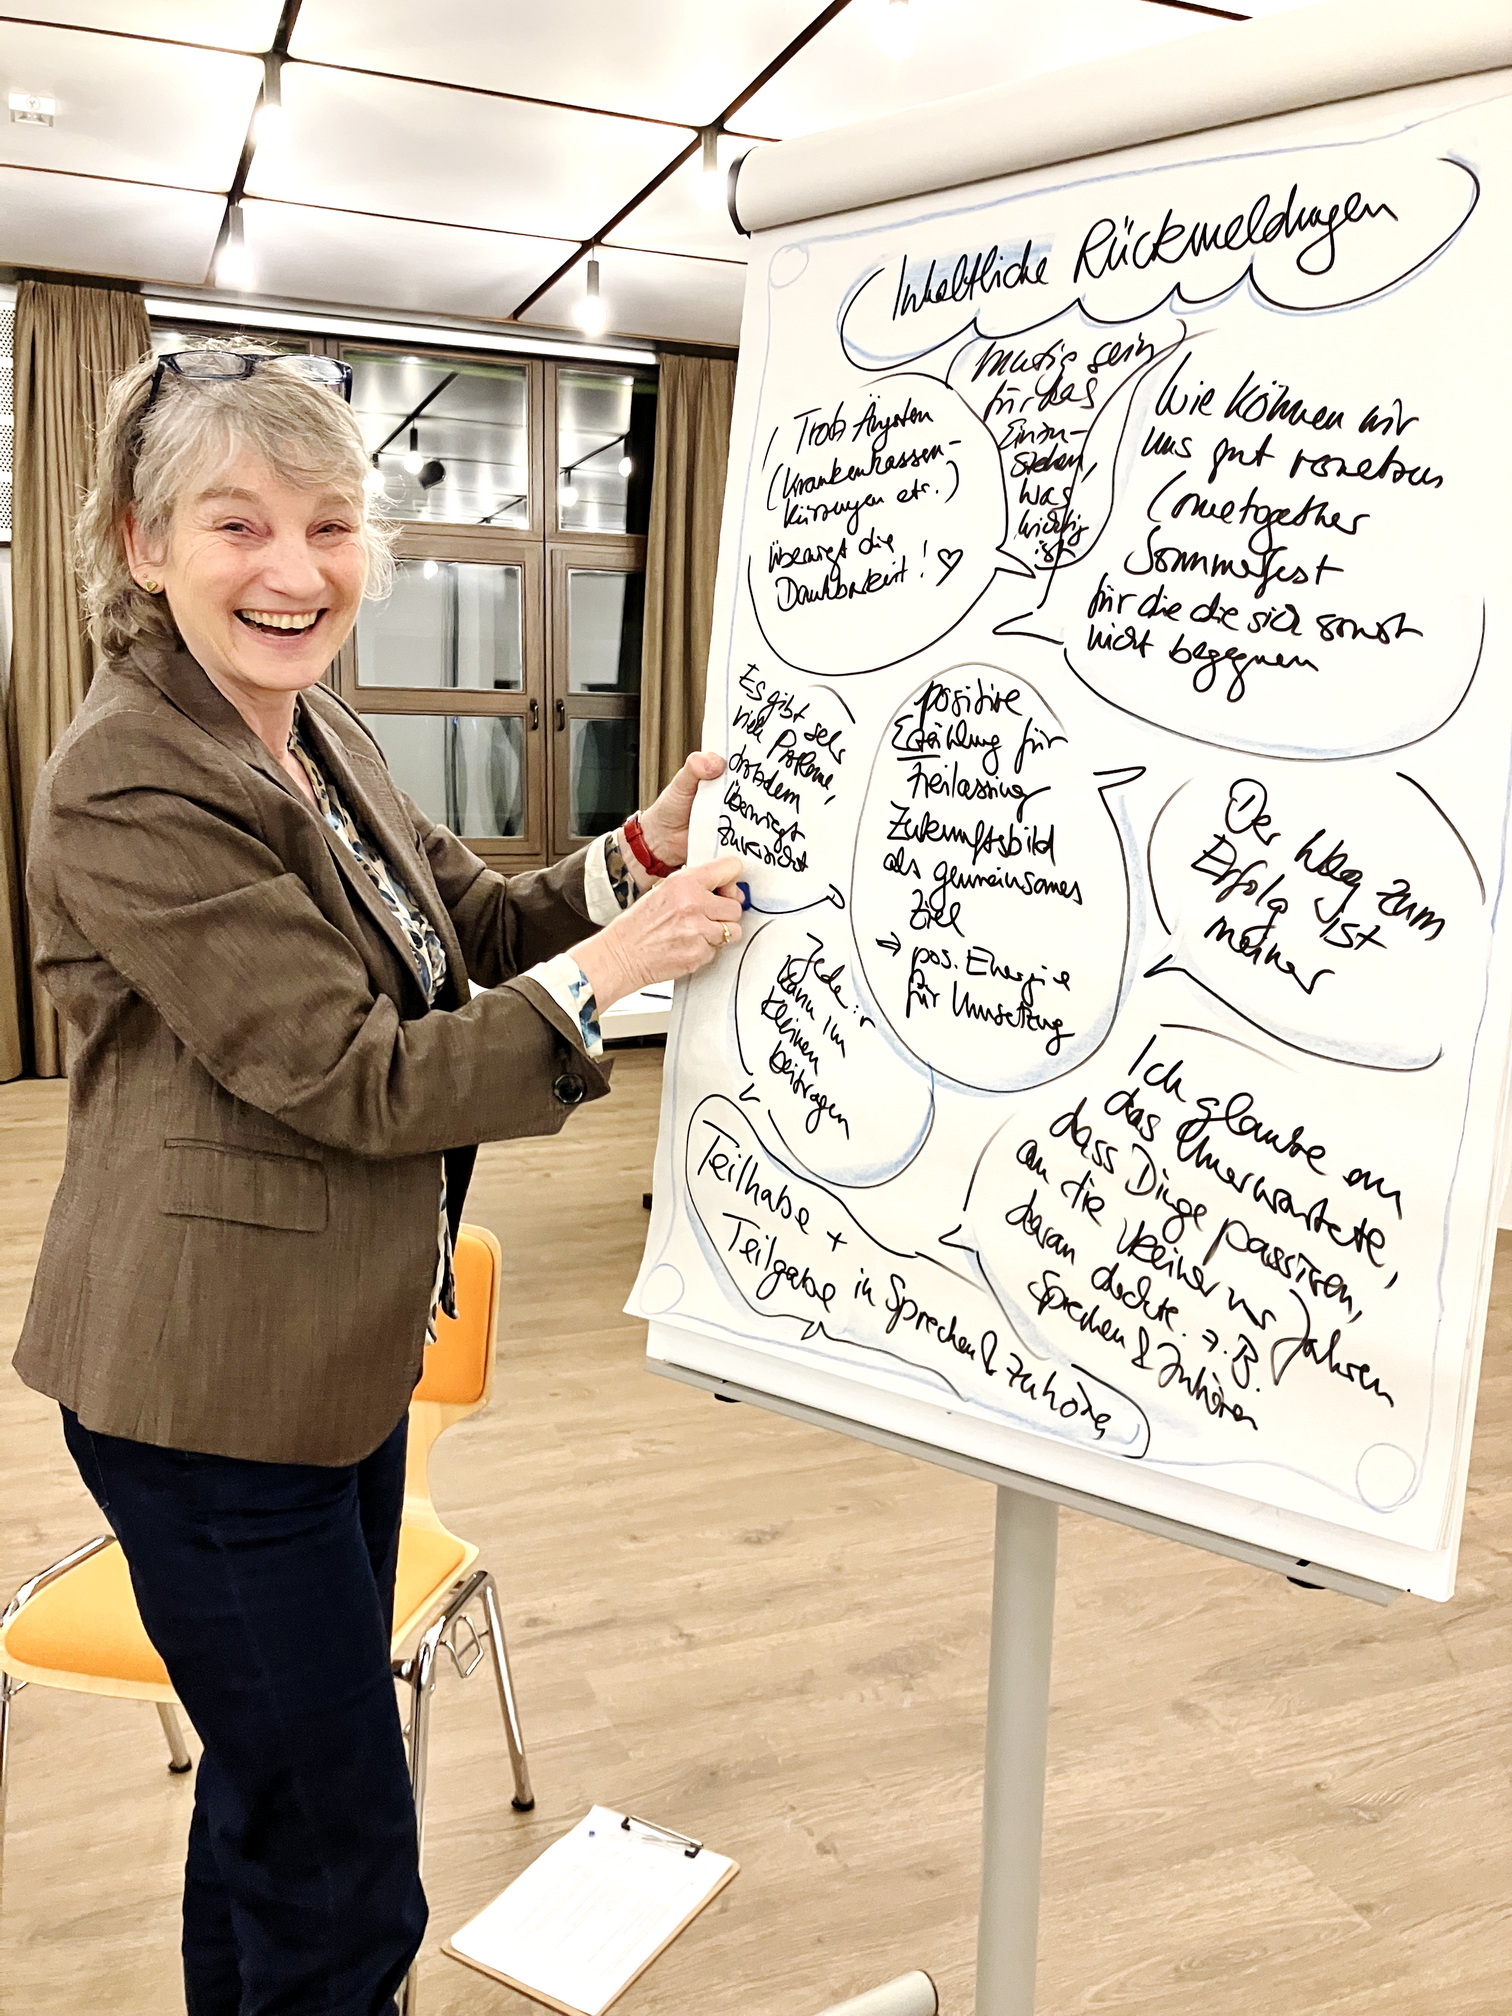 Inhaltliche Rückmeldungen
mutig sein
für das
Einzu-
stehen,
was
wichtig
ist
Trotz Ängsten
(Krankenkassen-
kürzungen etc.)
überwiegt die
Dankbarkeit! ♡
Wie können wir
uns gut vernetzen
Cometogether
Sommerfest
für die die sich sonst
nicht begegnen
Es gibt sehr
viele Probleme,
trotzdem
überwiegt
Zuversicht
positive
Erzählung für
Freilassing
Zukunftsbild
als gemeinsames
Ziel
⇒ pos. Energie
für Umsetzung
Der Weg zum
Erfolg ist
Jede:r
kann im
kleinen
beitragen
Ich glaube an
das Unerwartete,
dass Dinge passieren,
an die keiner vor Jahren
daran dachte. z.B.
Sprechen & Zuhören
Teilhabe +
Teilgabe in Sprechen & Zuhören